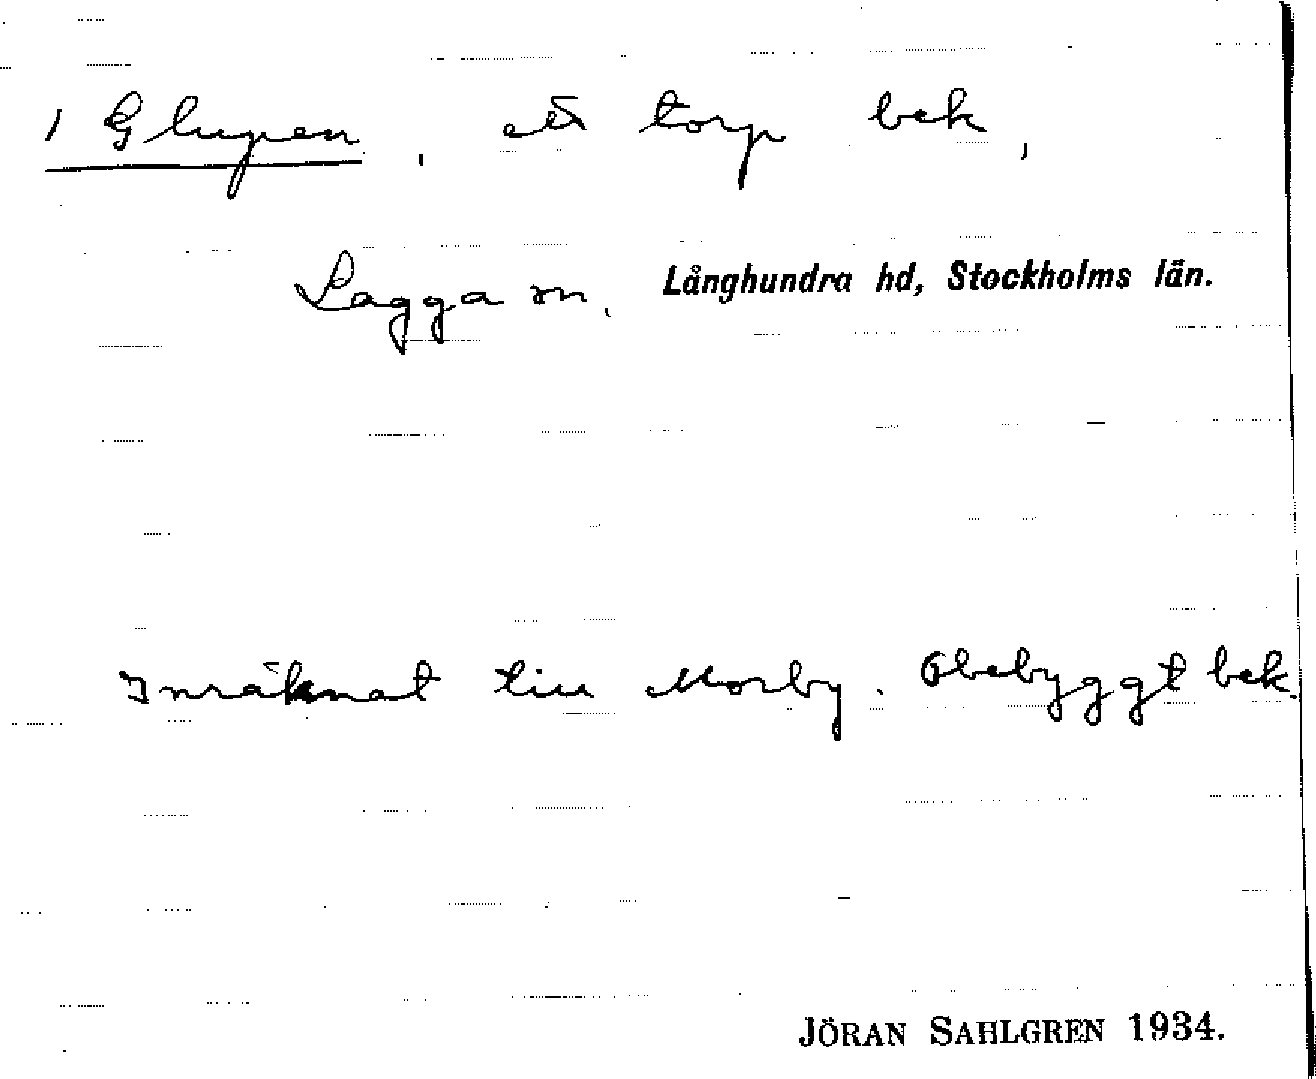 / Glupen, ett torp bek,
Lagga sn, Långhundra hd, Stockholms län.
Inräknat till Morby. Obebyggt bek.
JÖRAN SAHLGREN 1934.